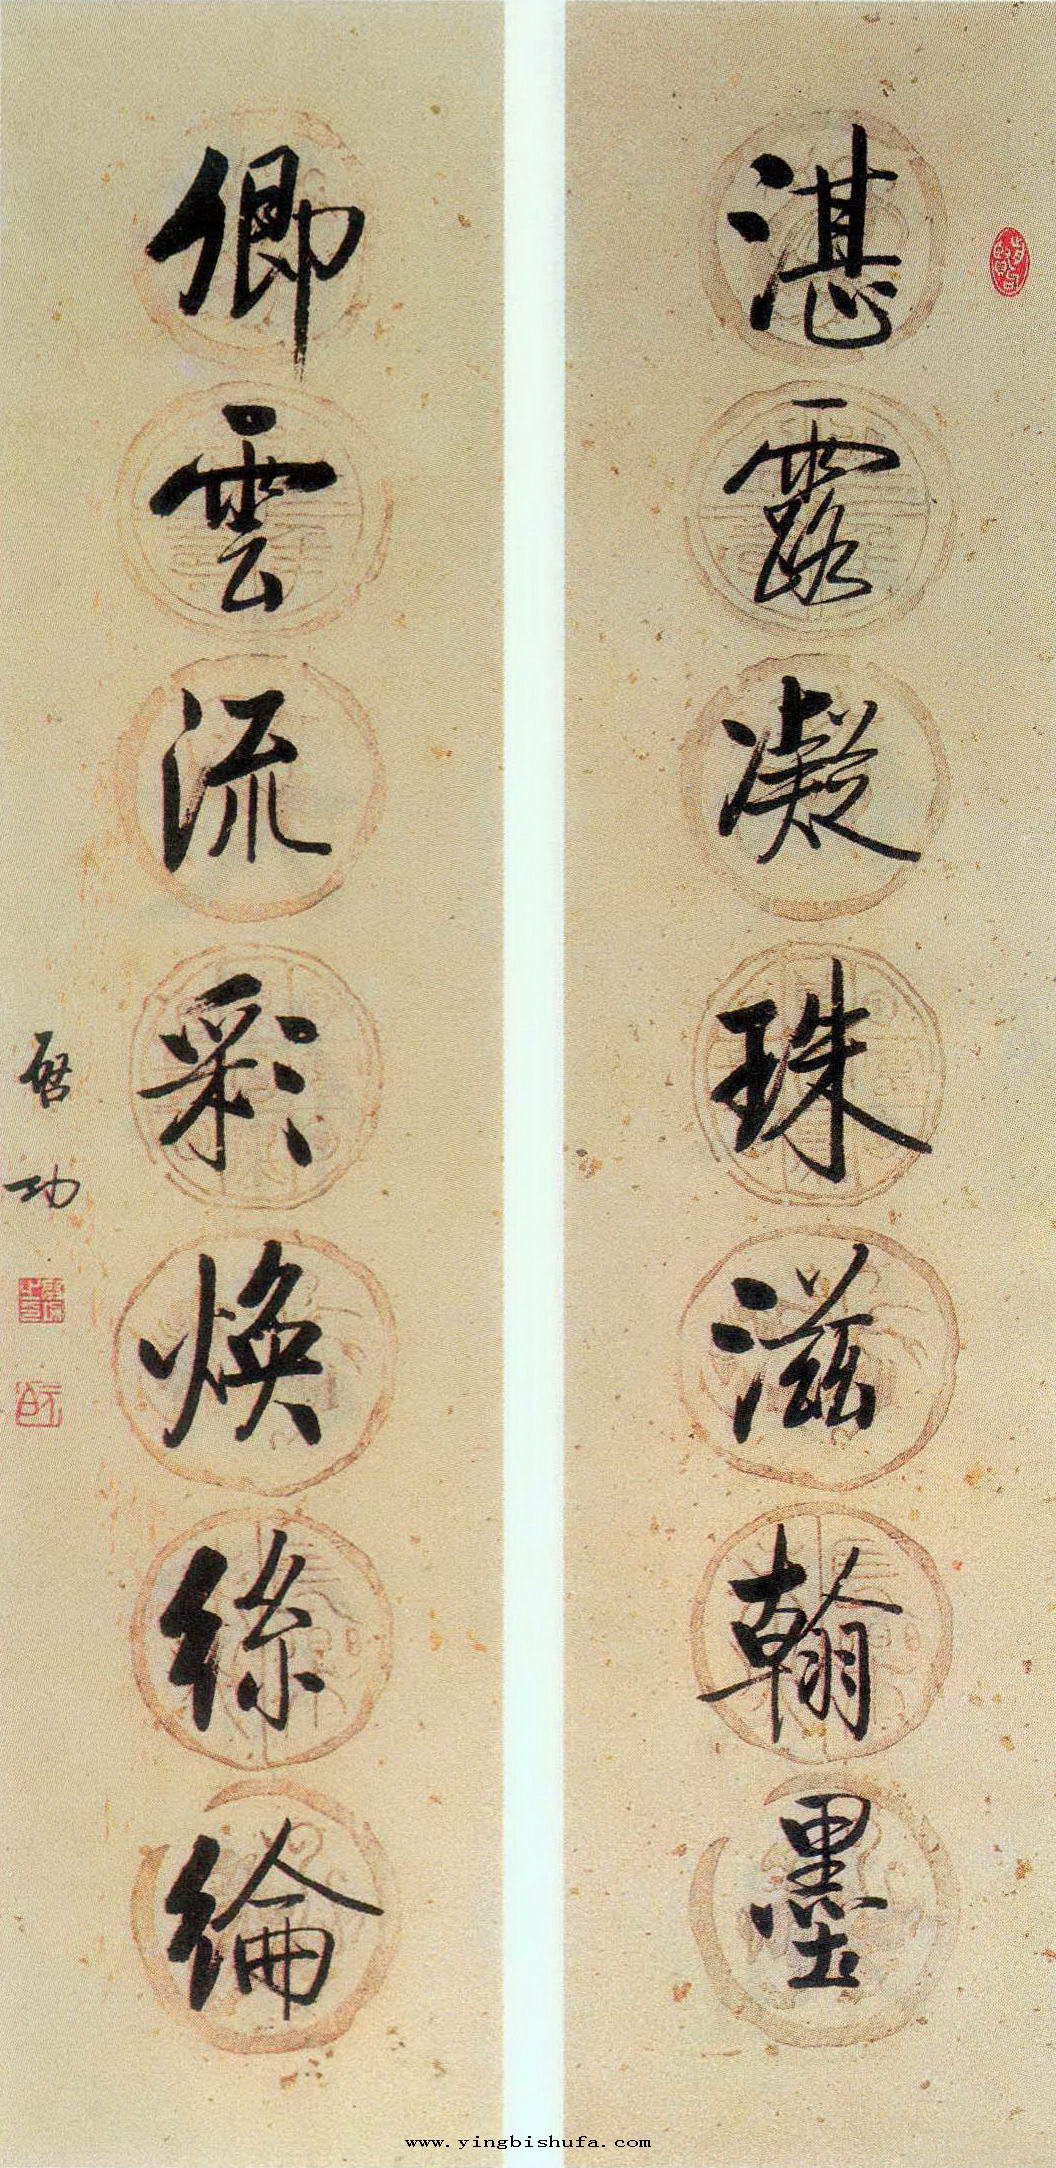 湛露凝珠滋翰墨
卿雲流彩煥絲綸
啓功
www.yingbishufa.com